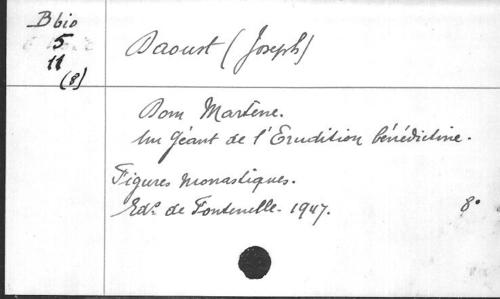 B bio
5
11
(8)
Daoust (Joseph)
Dom Martène.
Un Géant de l'Erudition bénédictine.
Figures monastiques.
Eds. de Fontenelle. 1947.
8°